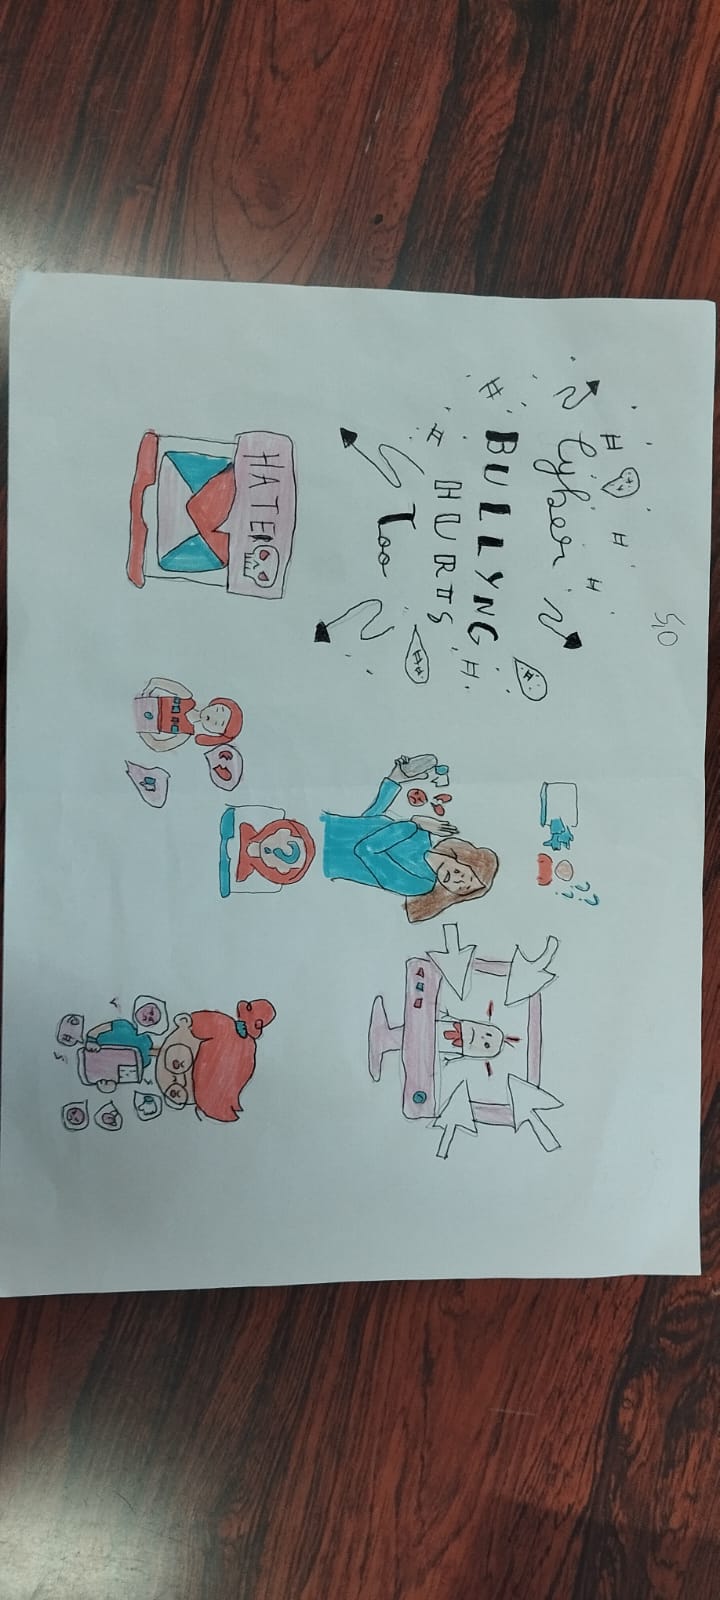 Cyber
BULLYNG
HURTS
Too
HATER
?